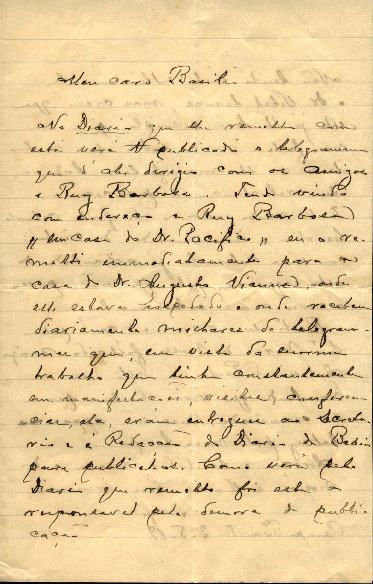 Meu caro Basilio
No Diario que lhe remetto com
esta verá publicado o telegramma
que d'ahi dirigio com os amigos
a Ruy Barbosa. Tendo vindo
com endereço a Ruy Barbosa
"em casa do Dr. Pacifico" eu o re-
metti immediatamente para a
casa do Dr. Augusto Vianna, onde
elle estava hospedado e onde recebeu
diariamente milhares de telegram-
mas que, em vista do enorme
trabalho que tinha constantemente
em manifestações, visitas, conferen-
cias, etc, eram entregues ao Secreta-
rio e á Redacção do Diario da Bahia
para publical-os. Como verá pelo
Diario que remetto foi este o
responsavel pela demora da publi-
cação